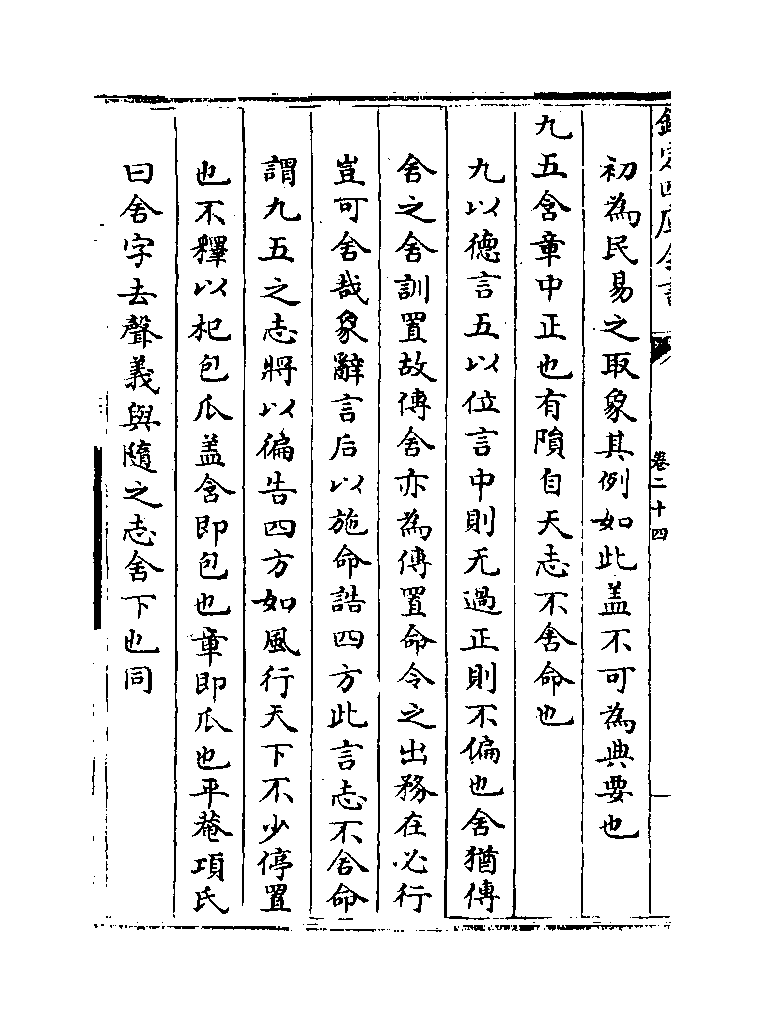 欽定四庫全書
卷二十四
初為民易之取象其例如此盖不可為典要也
九五含章中正也有隕自天志不舍命也
九以德言五以位言中則无過正則不偏也舍猶傳
舍之舍訓置故傳舍亦為傳置命令之出務在必行
豈可舍哉象辭言后以施命誥四方此言志不舍命
謂九五之志將以徧告四方如風行天下不少停置
也不釋以杞包瓜盖含即包也章即瓜也平菴項氏
曰舍字去聲義與隨之志舍下也同